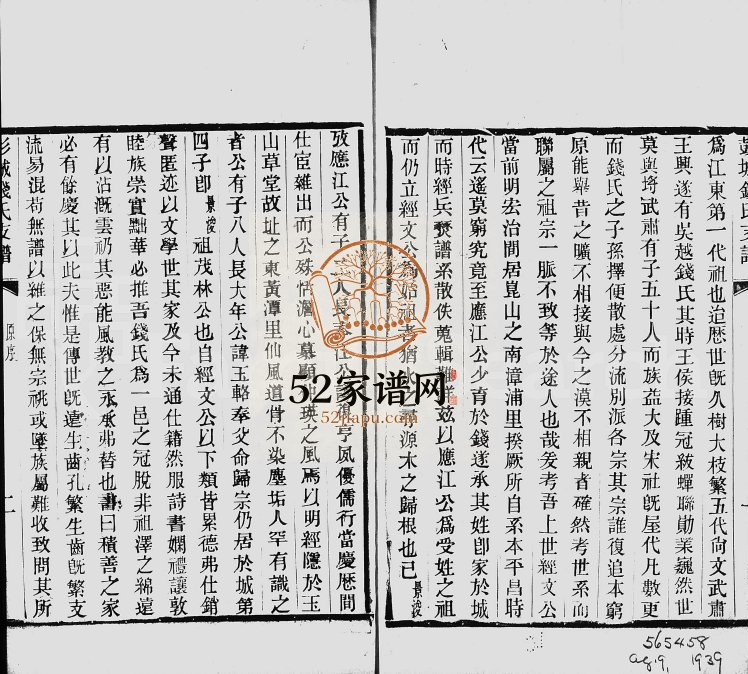 彭城錢氏支譜
爲江東第一代祖也迨厯世旣久樹大枝繁五代尙文武肅
王興遂有吳越錢氏其時王侯接踵冠紱蟬聯勛業巍然世
莫與埓武肅有子五十人而族益大及宋社旣屋代凡數更
而錢氏之子孫擇便散處分流別派各宗其宗誰復追本窮
原能舉昔之曠不相接與今之漠不相親者確然考世系而
聯屬之祖宗一脈不致等於途人也哉爰考吾上世經文公
當前明宏治間居崑山之南漳浦里揆厥所自系本平昌時
代云遙莫窮究竟至應江公少育於錢遂承其姓卽家於城
而時經兵燹譜系散佚蒐輯難詳茲以應江公爲受姓之祖
而仍立經文公爲始祖者猶水之尋源木之歸根也已景浚
一
攷應江公有子 人長 江公 亨 夙優儒行當慶厯間
仕宦雜出而公殊恬澹心慕顯 瑛之風焉以明經隱於玉
山草堂故址之東黃潭里仙風道骨不染塵垢人罕有識之
者公有子八人長大年公諱王輅奉父命歸宗仍居於城第
四子卽景浚祖茂林公也自經文公以下類皆累德弗仕銷
聲匿迹以文學世其家及今未通仕籍然服詩書嫻禮讓敦
睦族崇實黜華必推吾錢氏爲一邑之冠脫非祖澤之綿遠
有以沾漑雲礽其惡能風教之永承弗替也書曰積善之家
必有餘慶其以此夫惟是傳世旣遠生齒孔繁生齒旣繁支
流易混苟無譜以維之保無宗祧或墜族屬難收致問其所
彭城錢氏支譜
原序
二
52家谱网
52jiapu.com
565458
ag. 9, 1939